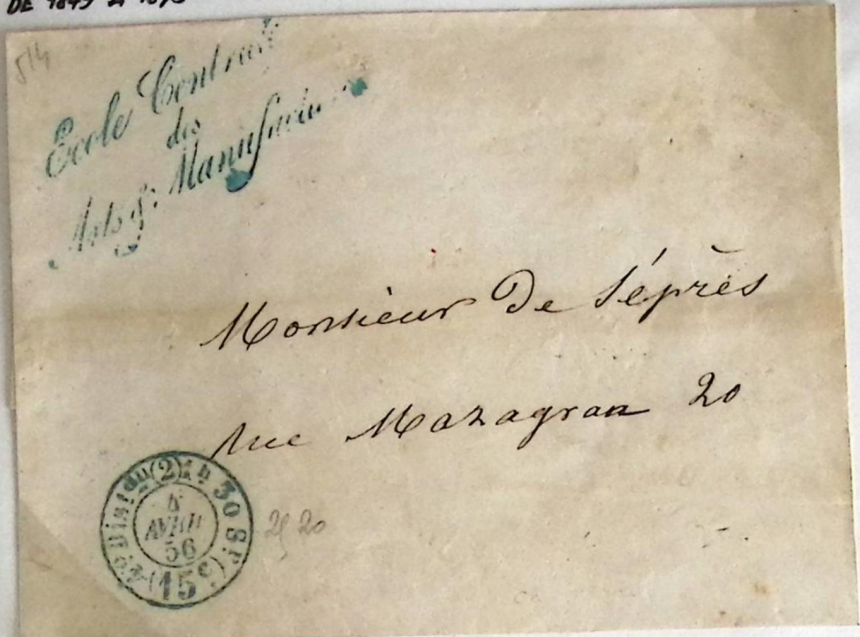 DE 1849 à
514
Ecole Centrale
des
Arts & Manufactures
Monsieur De Séprès
Rue Mazagran 20
4e Dist on (2) 4 h 30 S.
4
AVRIL
56
(15c)
20